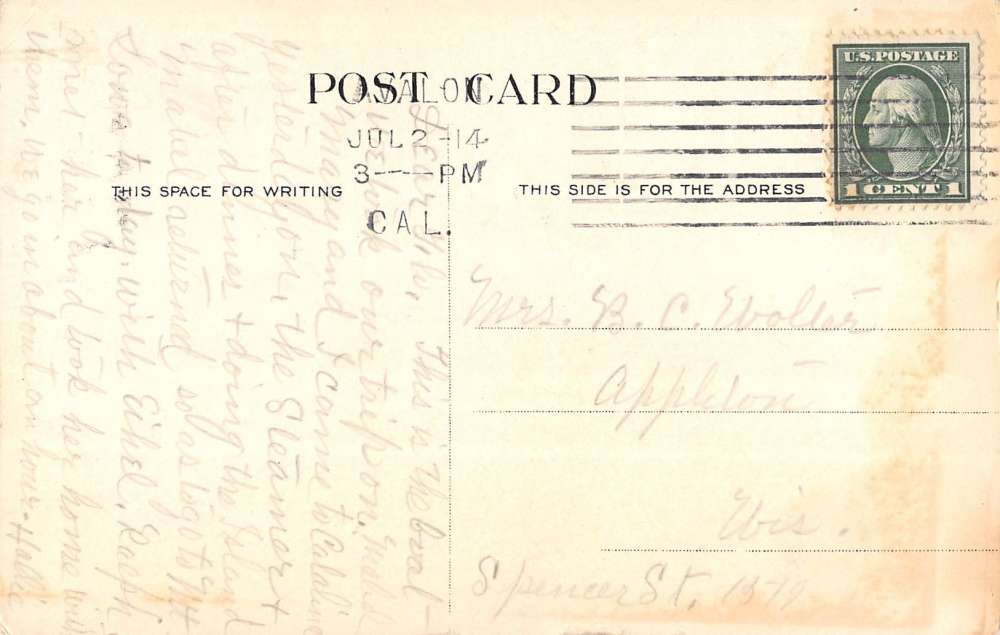 POST CARD
AVALON
JUL 2-14
3----PM
CAL.
U.S. POSTAGE
1 CENT 1
THIS SPACE FOR WRITING
THIS SIDE IS FOR THE ADDRESS
Dear This is the boat -
we took our trip on.
and I came to Catalina
yesterday on the Steamer &
after dinner + doing the Island
Mabel returned so as to get to Mt
Lowe to day. with Ethel. Ralph
met her and took her home with
them, we go in about an hour - Hallie
Mrs. B. C. Wolter
Appleton
Wis.
Spencer St, 1879